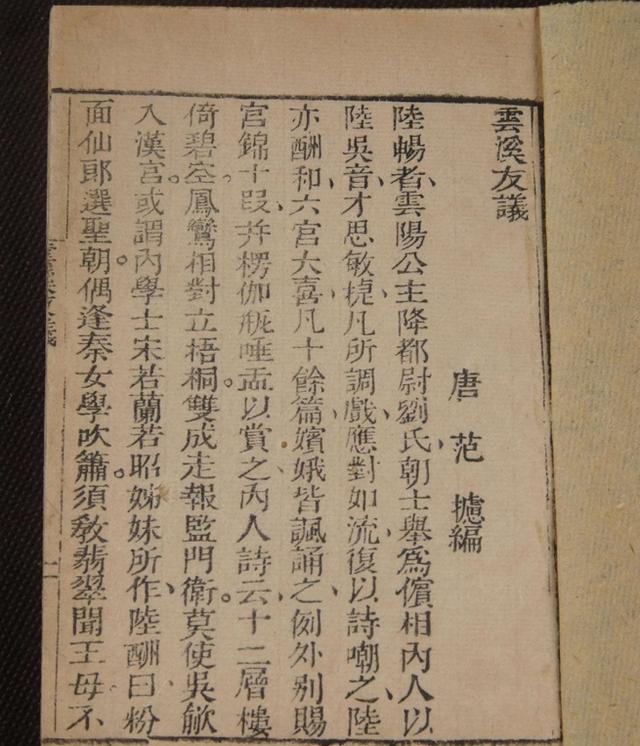 雲溪友議
唐 范 攄編
陸暢者雲陽公主降都尉劉氏朝士舉為儐相內人以
陸吳音才思敏㨗凡所調戲應對如流復以詩嘲之陸
亦酬和六宮大喜凡十餘篇嬪娥皆諷誦之例外別賜
宮錦十段并楞伽瓶唾盂以賞之內人詩云十二層樓
倚碧空鳳鸞相對立梧桐雙成走報監門衛莫使吳歈
入漢宮或謂內學士宋若蘭若昭姊妹所作陸酬曰粉
面仙郎選聖朝偶逢秦女學吹簫須敎翡翠聞王母不